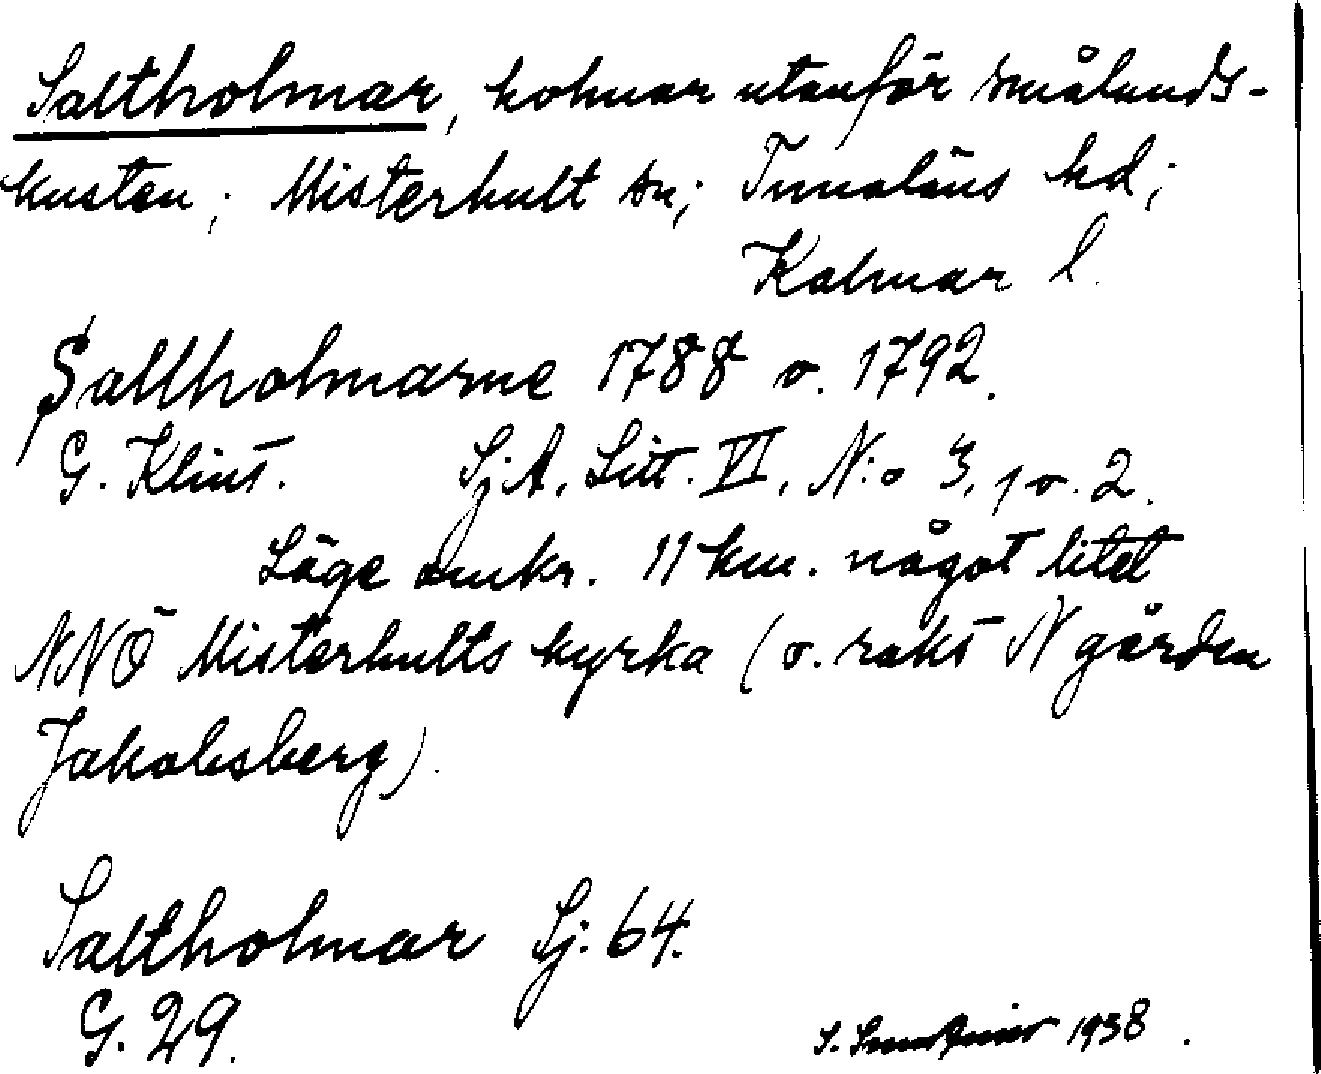 Saltholmar, holmar utanför smålands-
kusten; Misterhult sn; Tunaläns hd;
Kalmar l.
Saltholmarne 1788 o. 1792.
G. Klint. Sj.A. Litt. VI, N:o 3, 1 o. 2.
Läge omkr. 11 km. något litet
NNÖ Misterhults kyrka (o. rakt N gården
Jakobsberg).
Saltholmar Sj. 64.
G. 29.
S. 1938.